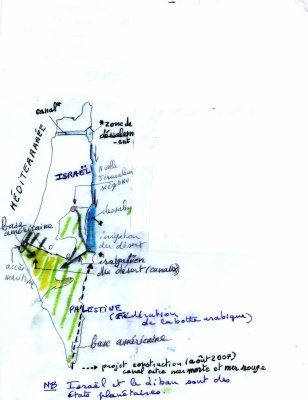 canal*
* zone de
déssalem
-ent
MÉDITERRANÉE
ISRAËL
Nelle
Jérusalem
base
américaine
irrigation
du désert
* irrigation
du désert (canaux)
accès
maritime
PALESTINE (fédération
de la botte arabique)
base américaine
---> projet construction (août 2007)
canal entre mer morte et mer rouge
NB Israël et le Liban sont des
états planétaires.